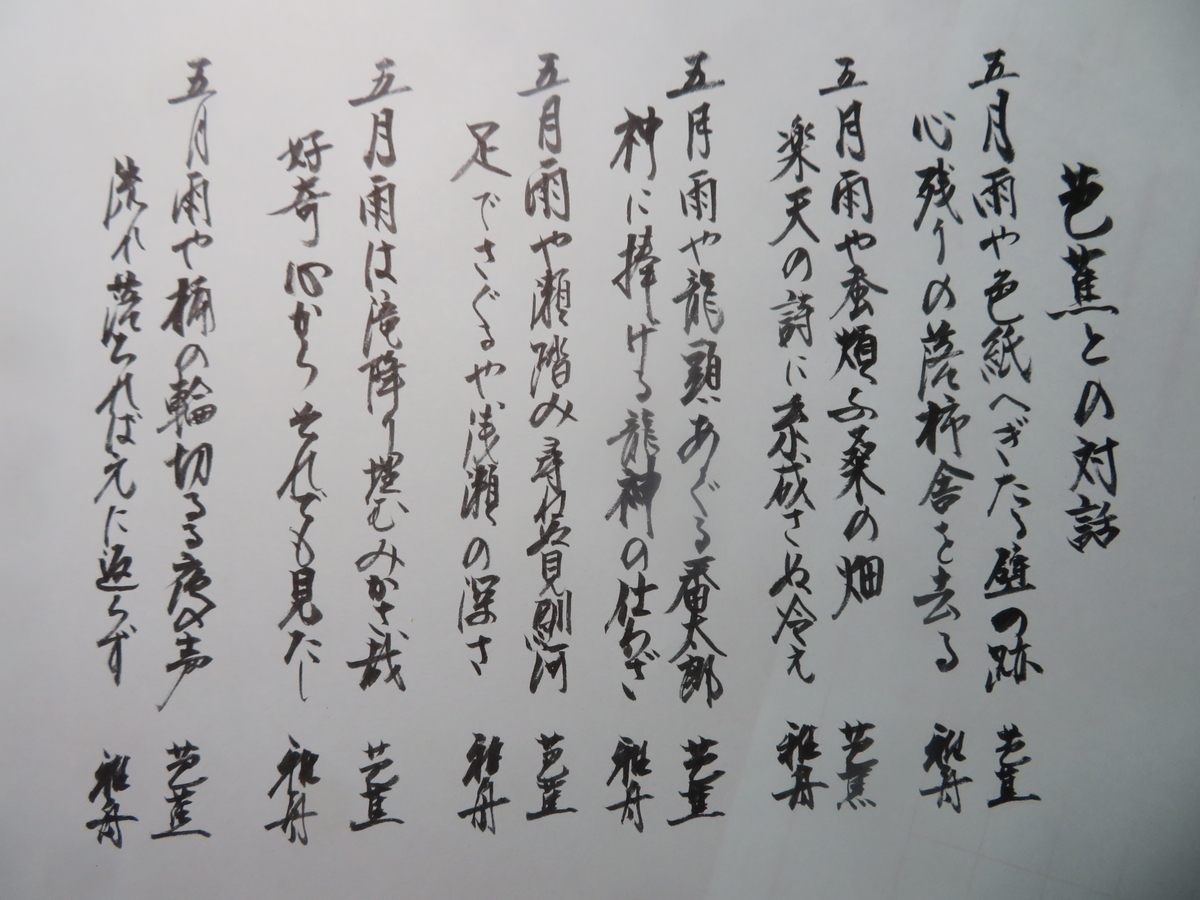 芭蕉との対話
五月雨や色紙へぎたる壁の跡 芭蕉
心残りの落柿舎を去る 雅舟
五月雨や蚕煩ふ桑の畑 芭蕉
楽天の詩に京成さぬ冷え 雅舟
五月雨や龍頭あぐる番太郎 芭蕉
神に捧げる龍神の仕わざ 雅舟
五月雨や瀬踏み尋ねぬ見馴河 芭蕉
足でさぐるや浅瀬の深さ 雅舟
五月雨は滝降り埋むみかさ哉 芭蕉
好奇心からそれでも見たし 雅舟
五月雨や桶の輪切るる夜の声 芭蕉
流れ落ちれば元に返らず 雅舟